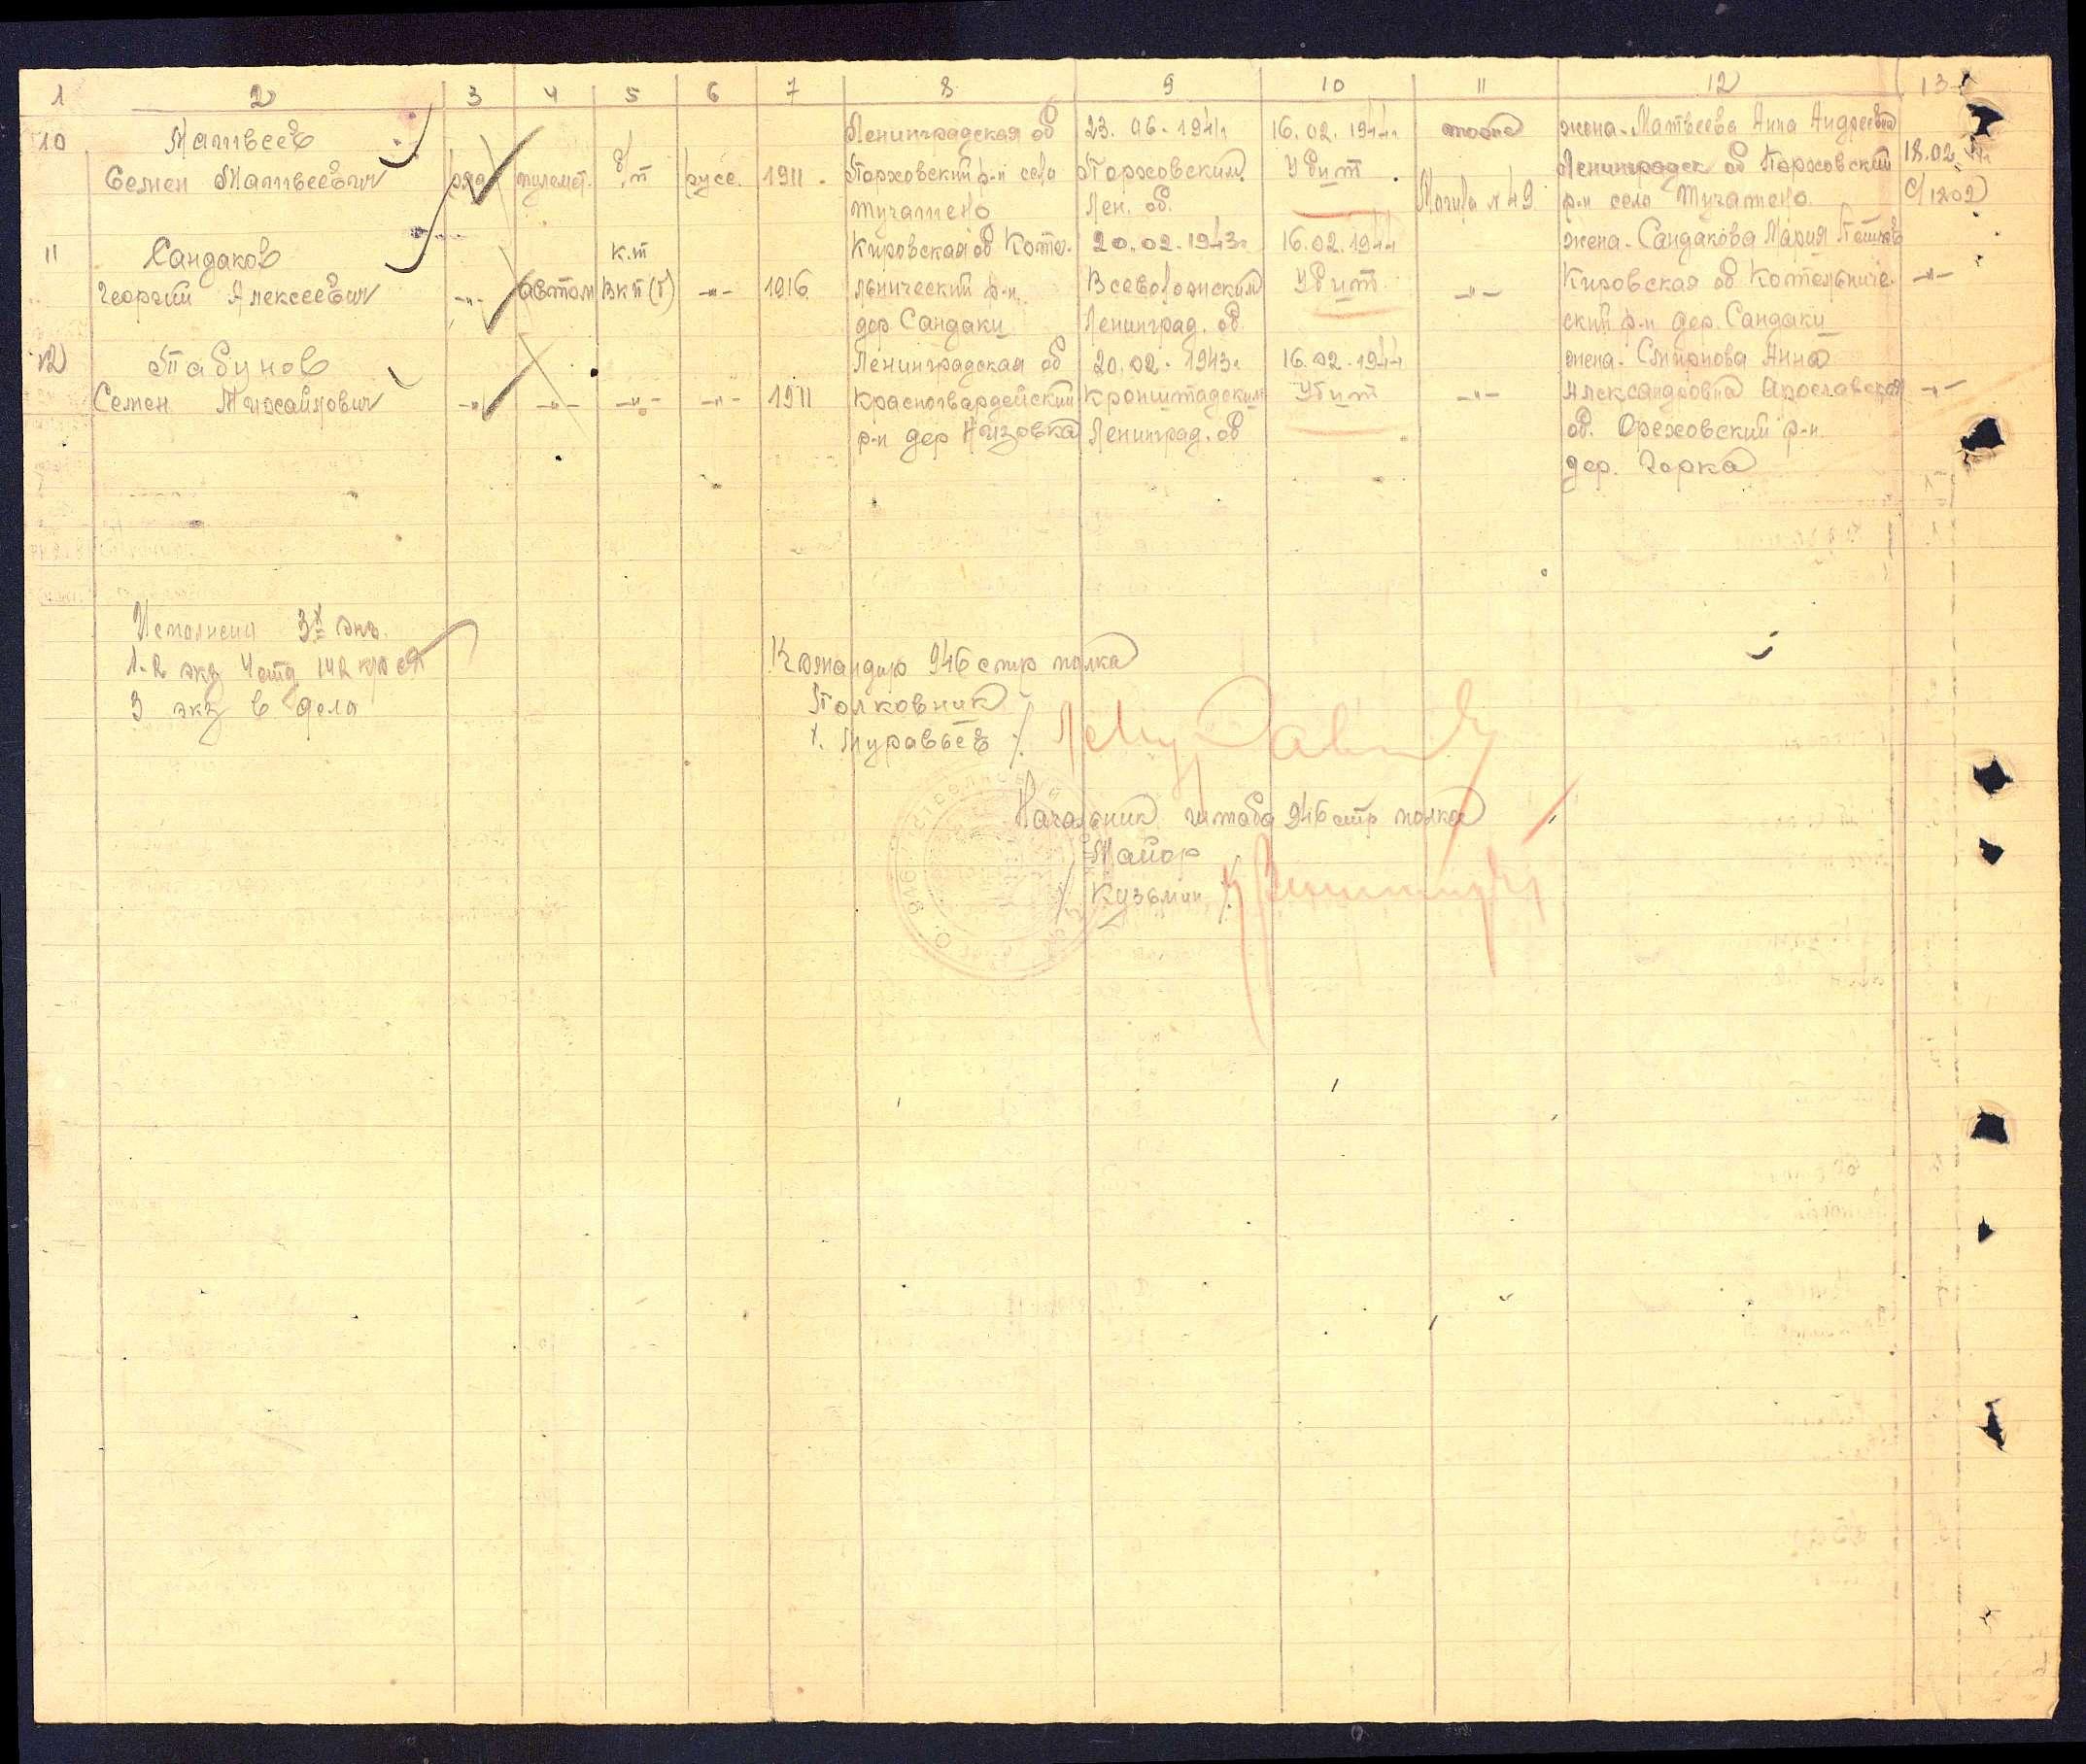 1 2 3 4 5 6 7 8 9 10 11 12 13
10 Матвеев Ленинградская об 23. 06. 1941 16. 02. 1944 тоже жена - Матвеева Анна Андреевна
Семен Матвеевич ряд пулемет. б/п русс. 1911 Порховский р-н село Порховским Убит Могила № 49 Ленинградск об Порховский 18.02.44
тучатено Лен. об. р-н село Тучатено с/1202
11 Сандаков к.т Кировская об Коте- 20. 02. 1943г 16.02.1944 жена - Сандакова Мария
Георгий Алексеевич -"- автом ВКП(б) -"- 1916 льнический р-н Всеволожским Убит -"- Кировская об Котельниче- -"-
дер Сандаки Ленинград. об ский р-н дер. Сандаки
12 Табунов Ленинградская об 20. 02. 1943г 16.02.1944 жена - Смирнова Анна
Семен Михайлович -"- -"- -"- -"- 1911 Красногвардейский Кронштадским Убит -"- Александровна Ярославская -"-
р-н дер Низовка Ленинград. об об. Ореховский р-н.
дер. Горка
Исполнен 3х экз.
1-2 экз 4 отд 142 кр сд
3 экз в дело
Командир 946 стр полка
Полковник
/. Муравьев /
Начальник штаба 946 стр полка
Майор
/ Кузьмин /